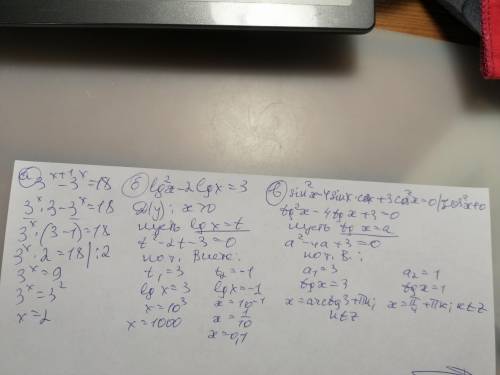 а) 3^(x+1) - 3^x = 18
3^x · 3 - 3^x = 18
3^x · (3-1) = 18
3^x · 2 = 18 | :2
3^x = 9
3^x = 3^2
x = 2
б) lg²x - 2 lgx = 3
ОД(у): x > 0
пусть lgx = t
t² - 2t - 3 = 0
по т. Виета:
t₁ = 3 t₂ = -1
lgx = 3 lgx = -1
x = 10³ x = 10⁻¹
x = 1000 x = 1/10
x = 0,1
в) sin²x - 4 sinx · cosx + 3 cos²x = 0 | : cos²x ≠ 0
tg²x - 4 tgx + 3 = 0
пусть tgx = a
a² - 4a + 3 = 0
по т. В.:
a₁ = 3 a₂ = 1
tgx = 3 tgx = 1
x = arctg3 + πk; x = π/4 + πk; k∈Z
k∈Z